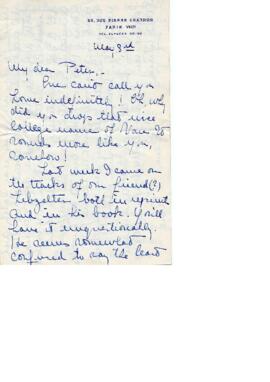 PARIS VIIIe
May 3rd
My dear Peter,
One can't call you
Home indefinitely! Oh why
did you drop that nice
college name of Van It
sounds more like you,
somehow!
Last week I came on
the tracks of our friend(?)
Lebzelter both in reprint
and in his book. You'll
have it unquestionably.
He seems somewhat
confused to say the least